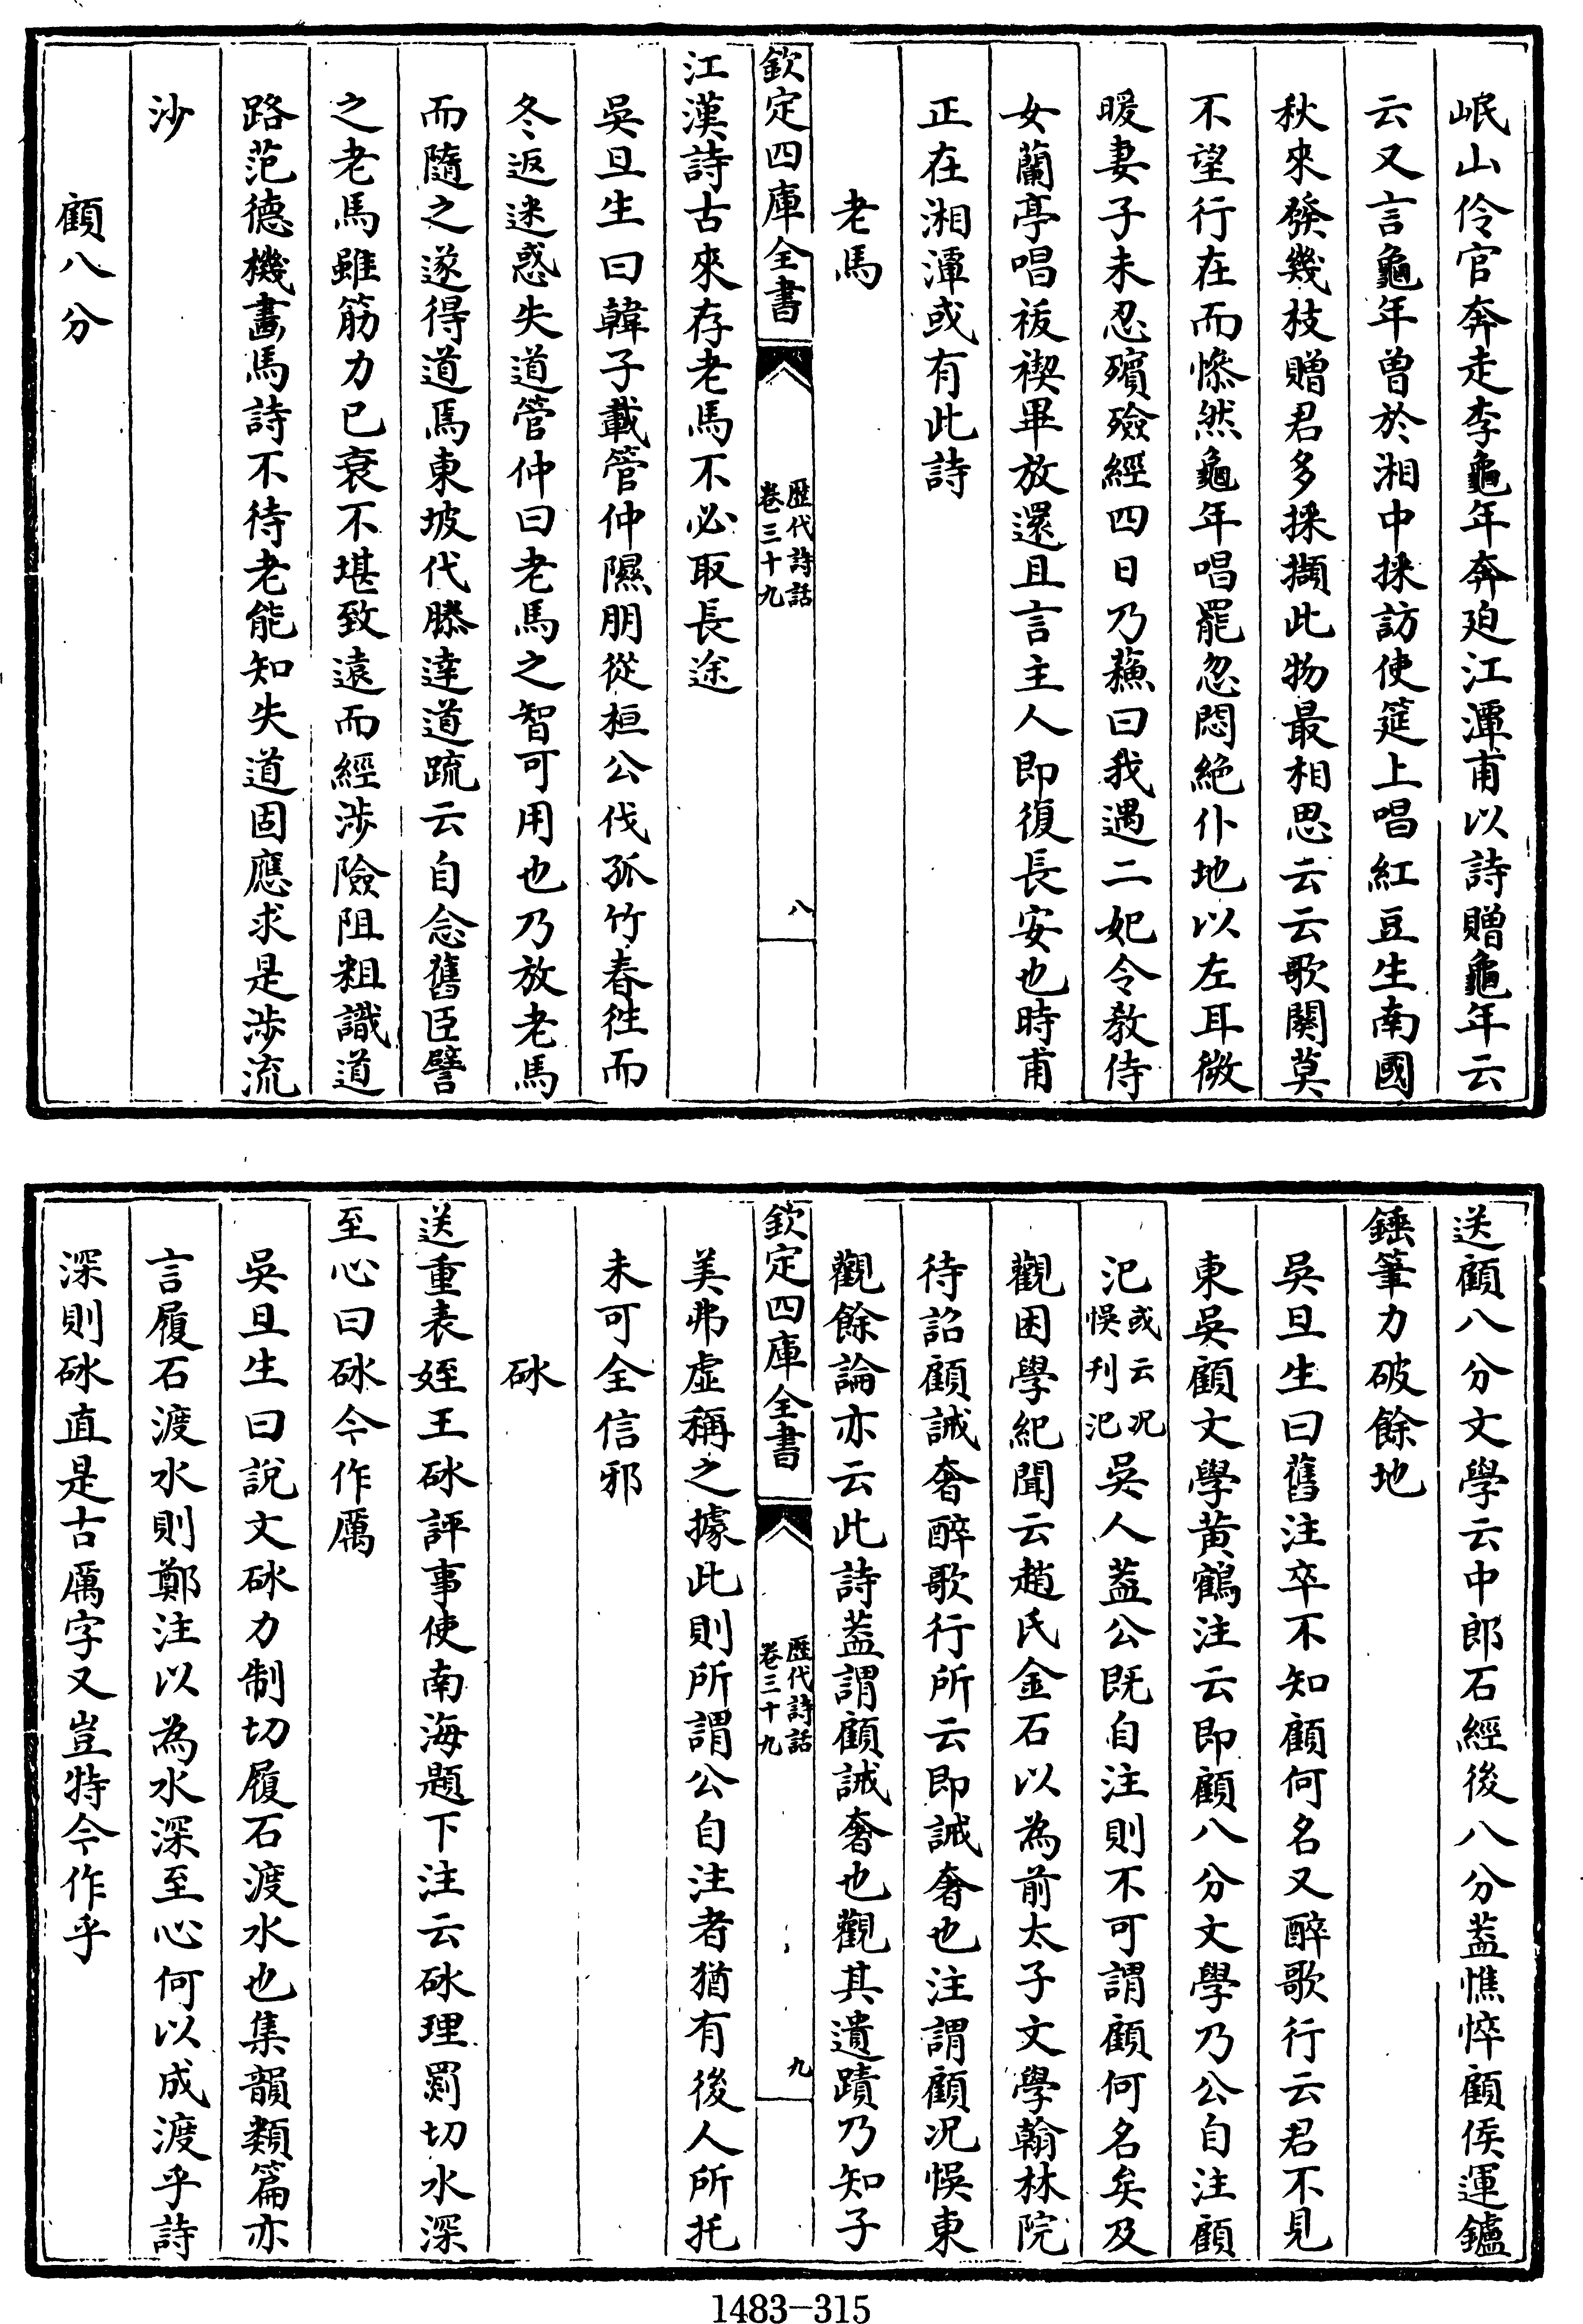 岷山伶官奔走李龜年奔廹江潭甫以詩贈龜年云
云又言龜年曽於湘中採訪使筵上唱紅豆生南國
秋來發幾枝贈君多採擷此物最相思云云歌闋莫
不望行在而慘然龜年唱罷忽悶絶仆地以左耳微
暖妻子未忍殯殮經四日乃蘓曰我遇二妃令教侍
女蘭亭唱袚禊畢放還且言主人即復長安也時甫
正在湘潭或有此詩
老馬
欽定四庫全書
歴代詩話
卷三十九
八
江漢詩古來存老馬不必取長途
吳旦生曰韓子載管仲隰朋從桓公伐孤竹春徃而
冬返迷惑失道管仲曰老馬之智可用也乃放老馬
而隨之遂得道馬東坡代滕逹道疏云自念舊臣譬
之老馬雖筋力已衰不堪致遠而經涉險阻粗識道
路范德機畫馬詩不待老能知失道固應求是涉流
沙
顧八分
送顧八分文學云中郎石經後八分蓋憔悴顧侯運鑪
錘筆力破餘地
吳旦生曰舊注卒不知顧何名又醉歌行云君不見
東吳顧文學黄鶴注云即顧八分文學乃公自注顧
汜或云况悞刋汜吳人蓋公既自注則不可謂顧何名矣及
觀困學紀聞云趙氏金石以為前太子文學翰林院
待詔顧誡奢醉歌行所云即誡奢也注謂顧况悞東
觀餘論亦云此詩蓋謂顧誡奢也觀其遺蹟乃知子
欽定四庫全書
歴代詩話
卷三十九
九
美弗虚稱之據此則所謂公自注者猶有後人所托
未可全信邪
砅
送重表姪王砅評事使南海題下注云砅理罽切水深
至心曰砅今作厲
吳旦生曰說文砅力制切履石渡水也集韻類篇亦
言履石渡水則鄭注以為水深至心何以成渡乎詩
深則砅直是古厲字又豈特今作乎
1483-315